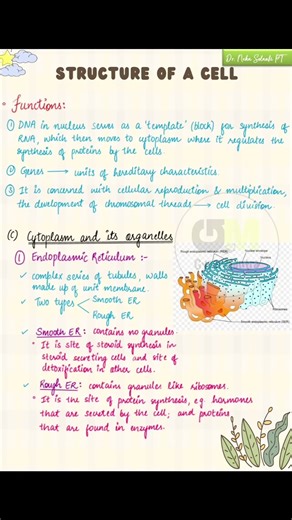 Dr. Neha Solanki PT
STRUCTURE OF A CELL
* Functions:
① DNA in nucleus serves as a 'template' (block) for synthesis of
RNA, which then moves to cytoplasm where it regulates the
synthesis of proteins by the cells.
② Genes → units of hereditary characteristics.
③ It is concerned with cellular reproduction & multiplication,
the development of chromosomal threads → cell division.
(C) Cytoplasm and its organelles
① Endoplasmic Reticulum :-
✓ complex series of tubules, walls
made up of unit membrane.
✓ Two types < Smooth ER
Rough ER
✓ Smooth ER: contains no granules.
* It is site of steroid synthesis in
steroid secreting cells and site of
detoxification in other cells.
✓ Rough ER: contains granules like ribosomes.
* It is the site of protein synthesis, e.g. hormones
that are secreted by the cell; and proteins
that are found in enzymes.
GM
Nucleus
Smooth endoplasmic reticulum (SER)